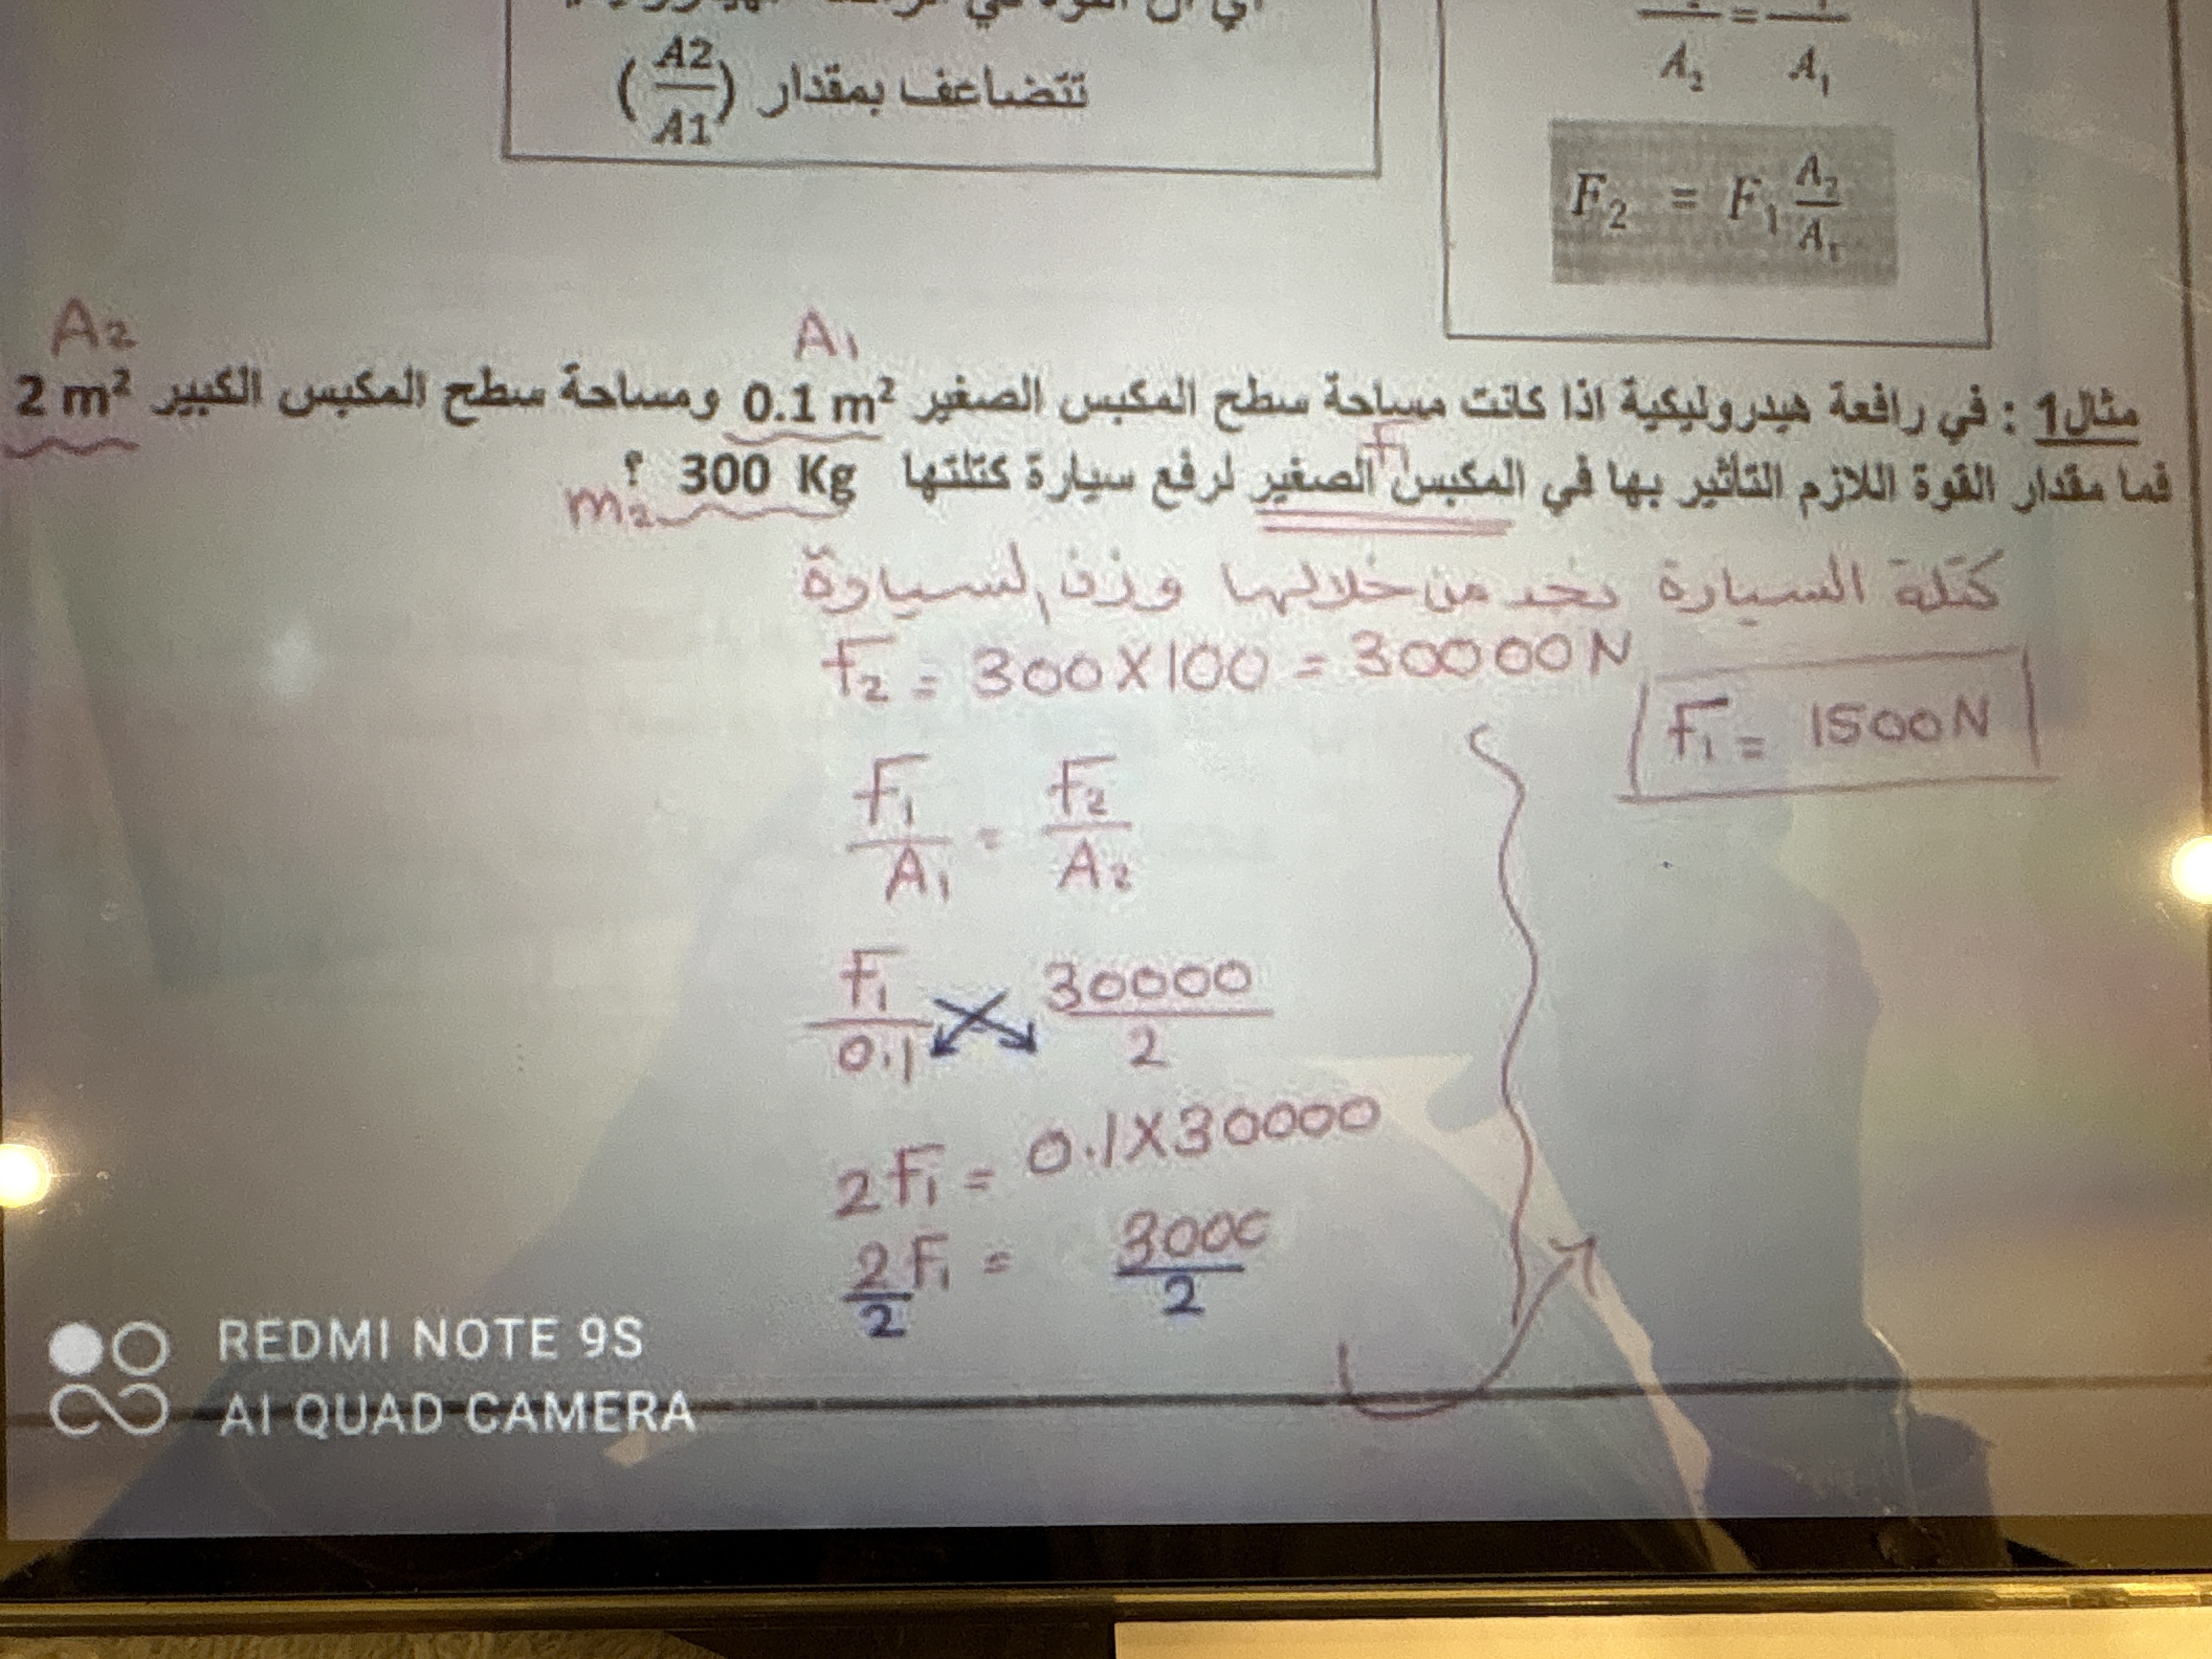 تتضاعف بمقدار (A2/A1)
A₂ A₁
F₂ = F₁ A₂/A₁
A2 A1
مثال1 : في رافعة هيدروليكية اذا كانت مساحة سطح المكبس الصغير 0.1 m² ومساحة سطح المكبس الكبير 2 m²
فما مقدار القوة اللازم التأثير بها في المكبس الصغير لرفع سيارة كتلتها 300 Kg ؟
m2
كتلة السيارة نجد من خلالها وزن السيارة
F2 = 300X100 = 30000N
F1 = 1500N
F1/A1 = F2/A2
F1/0.1 30000/2
2F1 = 0.1X30000
2F1/2 = 3000/2
REDMI NOTE 9S
AI QUAD CAMERA